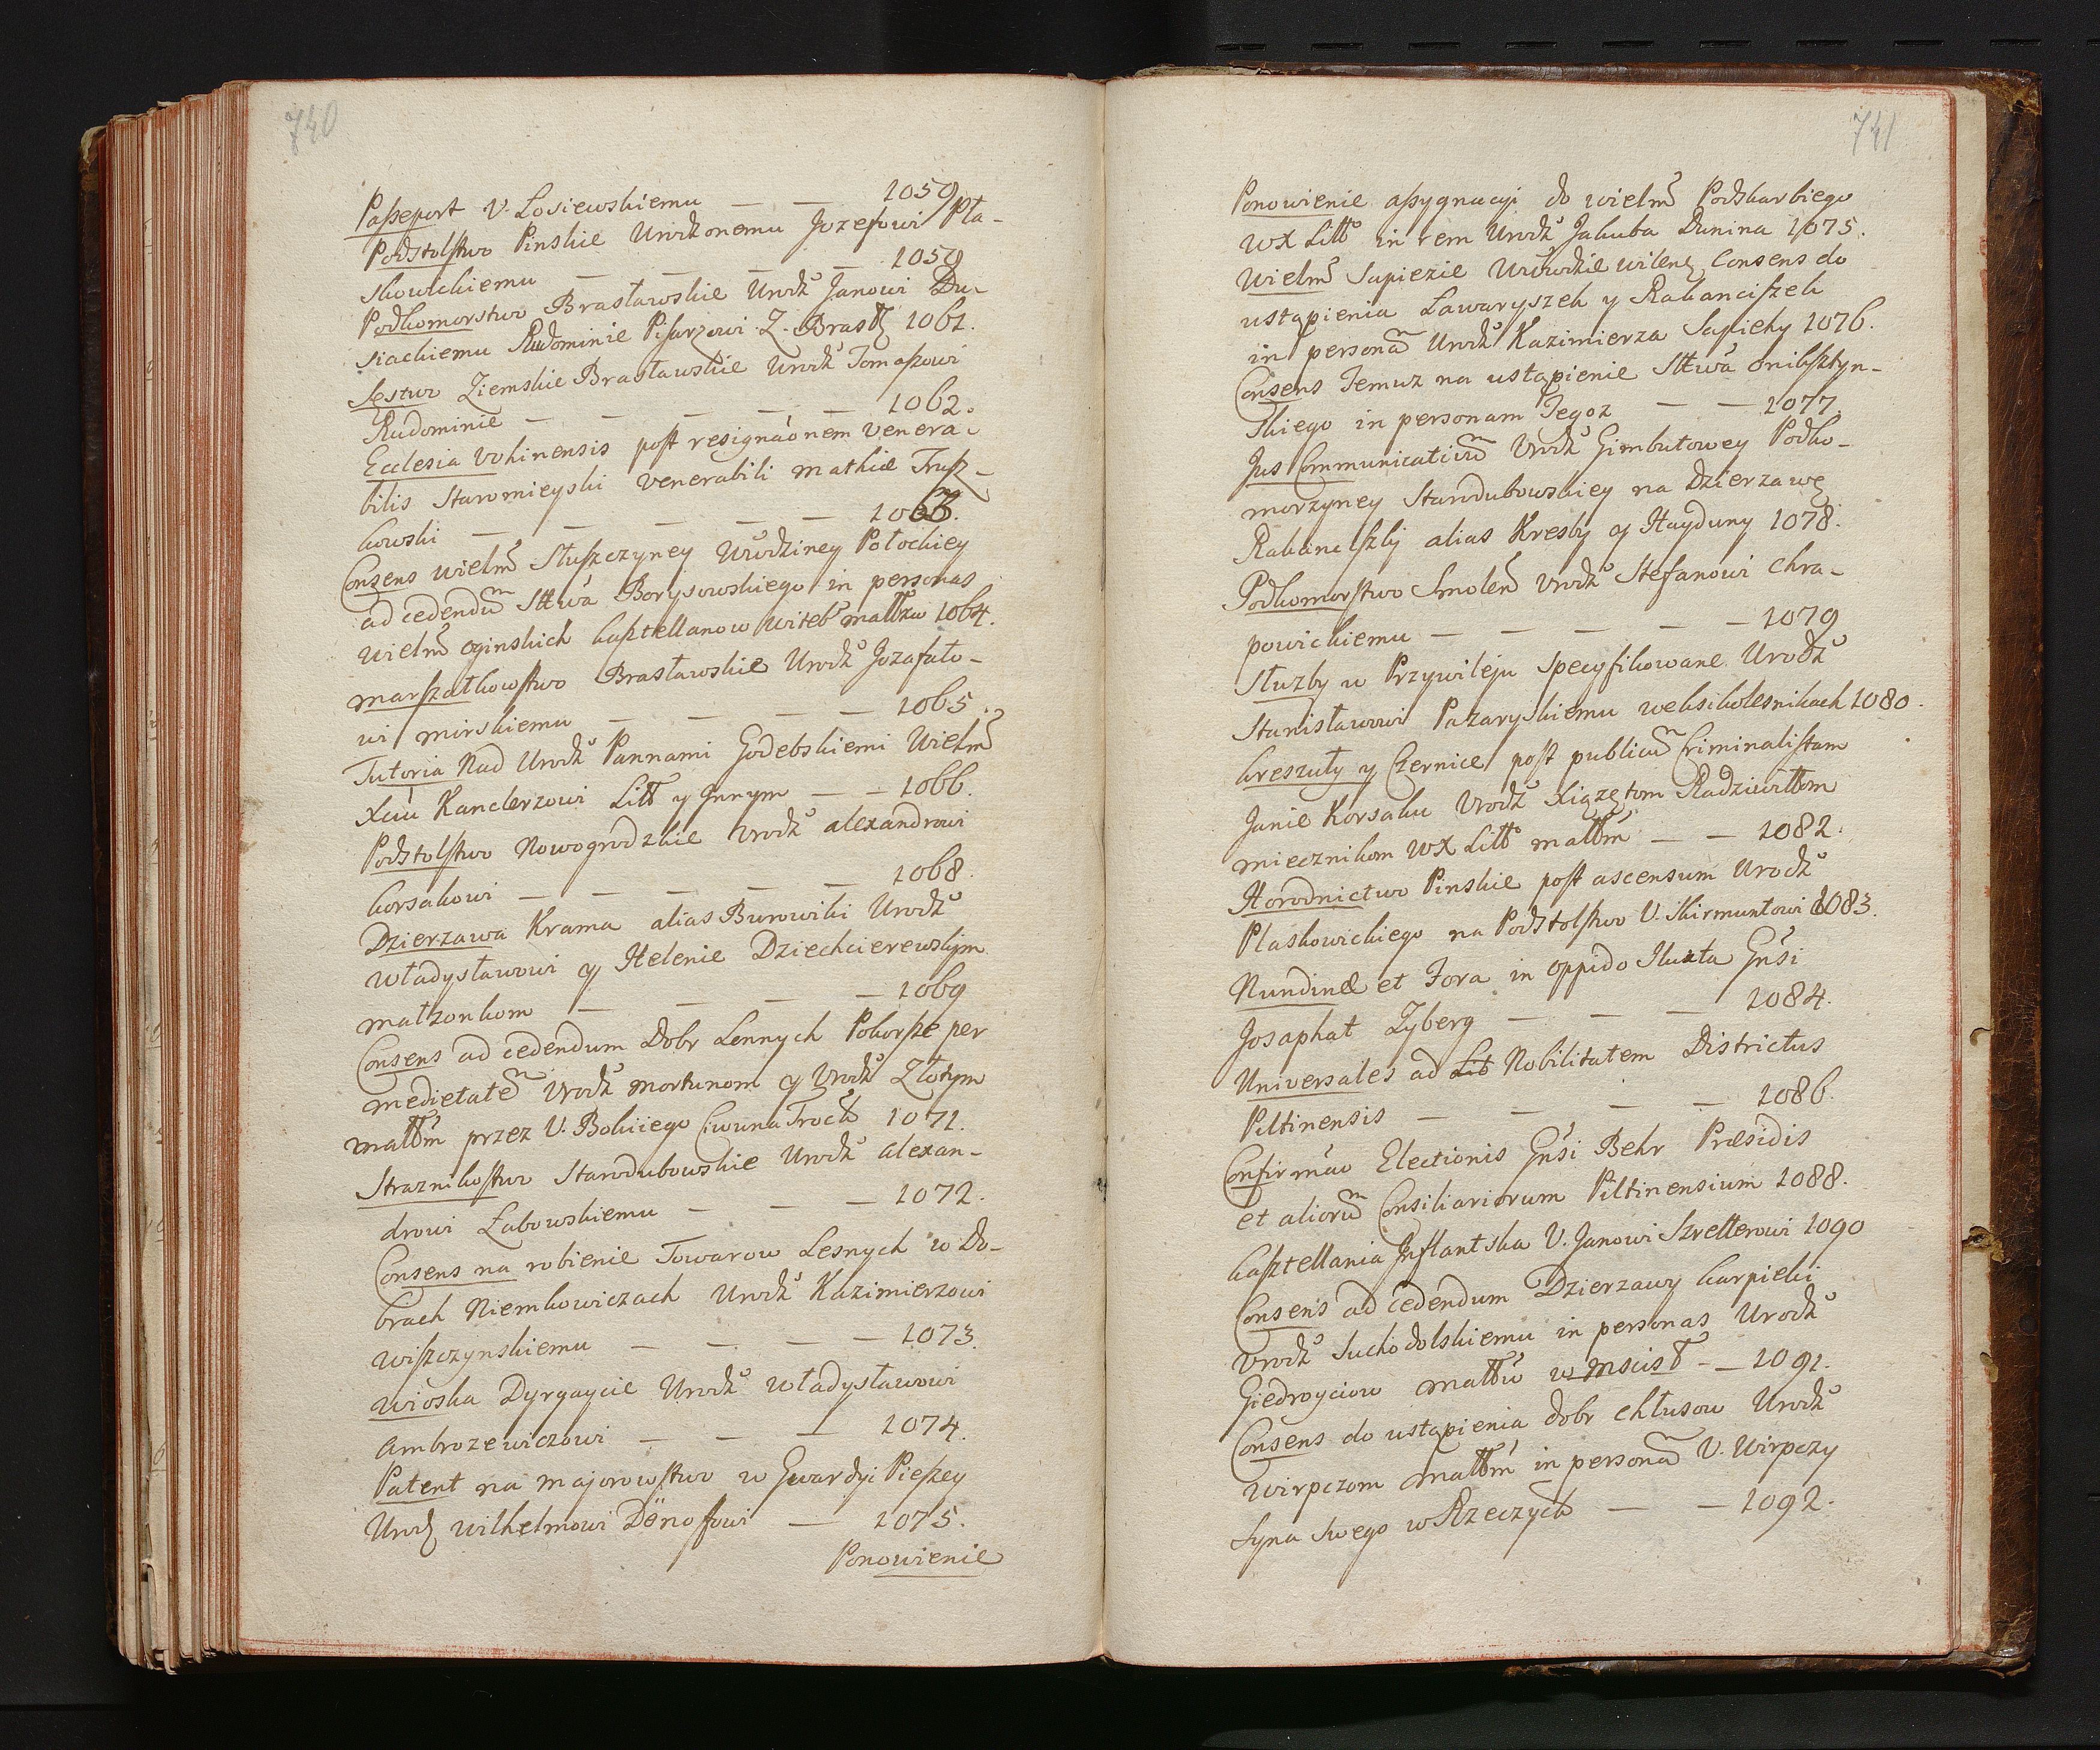 740
Passeport V. Łosiewskiemu — — 1059
Podstolstwo Pinskie Urodzonemu Jozefowi Pla-
skowickiemu — — — — 1059
Podkomorstwo Brasławskie Urodz Janowi Du-
siackiemu Rudominie Pisarzowi Z. Brasł 1061.
Sęstwo Ziemskie Brasławskie Urodz Tomaszowi
Rudominie — — — — — 1062.
Ecclesia Vohinensis post resignaonem Venera-
bilis Staromieyski Venerabili Mathiæ Trusz-
kowski — — — — — 1063.
Consens wielm Słuszczyney Wwdziney Połockiey
ad cedendum Sttwa Borysowskiego in personas
wielm Oginskich kasztellanow witeb małłzw 1064.
Marszałkowstwo Brasławskie Urodz Jozafato-
wi Mirskiemu — — — — 1065.
Tutoria Nad Urodz Pannami Godebskiemi Wielm
Xciu Kanclerzowi Litt y Innym — — 1066.
Podstolstwo Nowogrodzkie Urodz Alexandrowi
korsakowi — — — — — 1068.
Dzierzawa Krama alias Burowiki Urodz
Władysławowi y Helenie Dziechcierewskim
małzonkom — — — — 1069
Consens ad cedendum Dobr Lennych Pokorsze per
medietatem Urodz Mortunom y Urodz Złotym
małłm przez V. Bokiiego Ciwuna Trock 1071.
Straznikostwo Starodubowskie Urodz Alexan-
drowi Łabowskiemu — — — 1072.
Consens na robienie Towarow Lesnych w Do-
brach Niemkowiczach Urodz Kazimierzowi
Wiszczynskiemu — — — — 1073.
Wioska Dyrgaycie Urodz Władysławowi
Ambrozewiczowi — — — 1074.
Patent na Majorowstwo w Gwardyi Pieszey
Urodz Wilhelmowi Dönoffowi — 1075.
Ponowienie
741
Ponowienie assygnacyi do wielm Podskarbiego
WX Litt in rem Urodz Jakuba Dunina 1075.
Wielm Sapiezie Wwdzie wilen Consens do
ustąpienia Ławaryszek y Rakanciszek
in personam Urodz Kazimierza Sapiehy 1076.
Consens Temuz na ustąpienie Sttwa Oniksztyn-
skiego in personam Tegoz — — 1077.
Jus Communicativum Urodz Gimbutowey Podko-
morzyney Starodubowskiey na Dzierzawę
Rakanciszki alias Kresby y Hayduny 1078.
Podkomorstwo Smolen Urodz Stefanowi Chra-
powickiemu — — — — — 1079
Słuzby w Przywileju specyfikowane Urodz
Stanisławowi Pazaryskiemu weksikolesnikach 1080.
kreszuły y Czernice post publicum Criminalistam
Janie Korsaku Urodz Xiązętom Radziwiłłom
miecznikom WX Litt małłm — — 1082.
Horodnictwo Pinskie post ascensum Urodz
Plaskowickiego na Podstolstwo V. Skirmuntowi 1083.
Nundinæ et Fora in oppido Iłuxta Gnsi
Josaphat Zyberg — — — 1084.
Universales ad Lit Nobilitatem Districtus
Piltinensis — — — — 1086.
Confirmao Electionis Gnsi Behr Præsidis
et aliorum Consiliariorum Piltinensium 1088.
kasztellania Inflantska V. Janowi Szretterowi 1090
Consens ad cedendum Dzierzawy karpieki
Urodz Suchodolskiemu in personas Urodz
Giedroyciow małłw w Mscisł — — 1091.
Consens do ustąpienia dobr chłusow Urodz
Wirpczom małłm in personam V. Wirpczy
syna swego w Rzeczyck — — 1092.